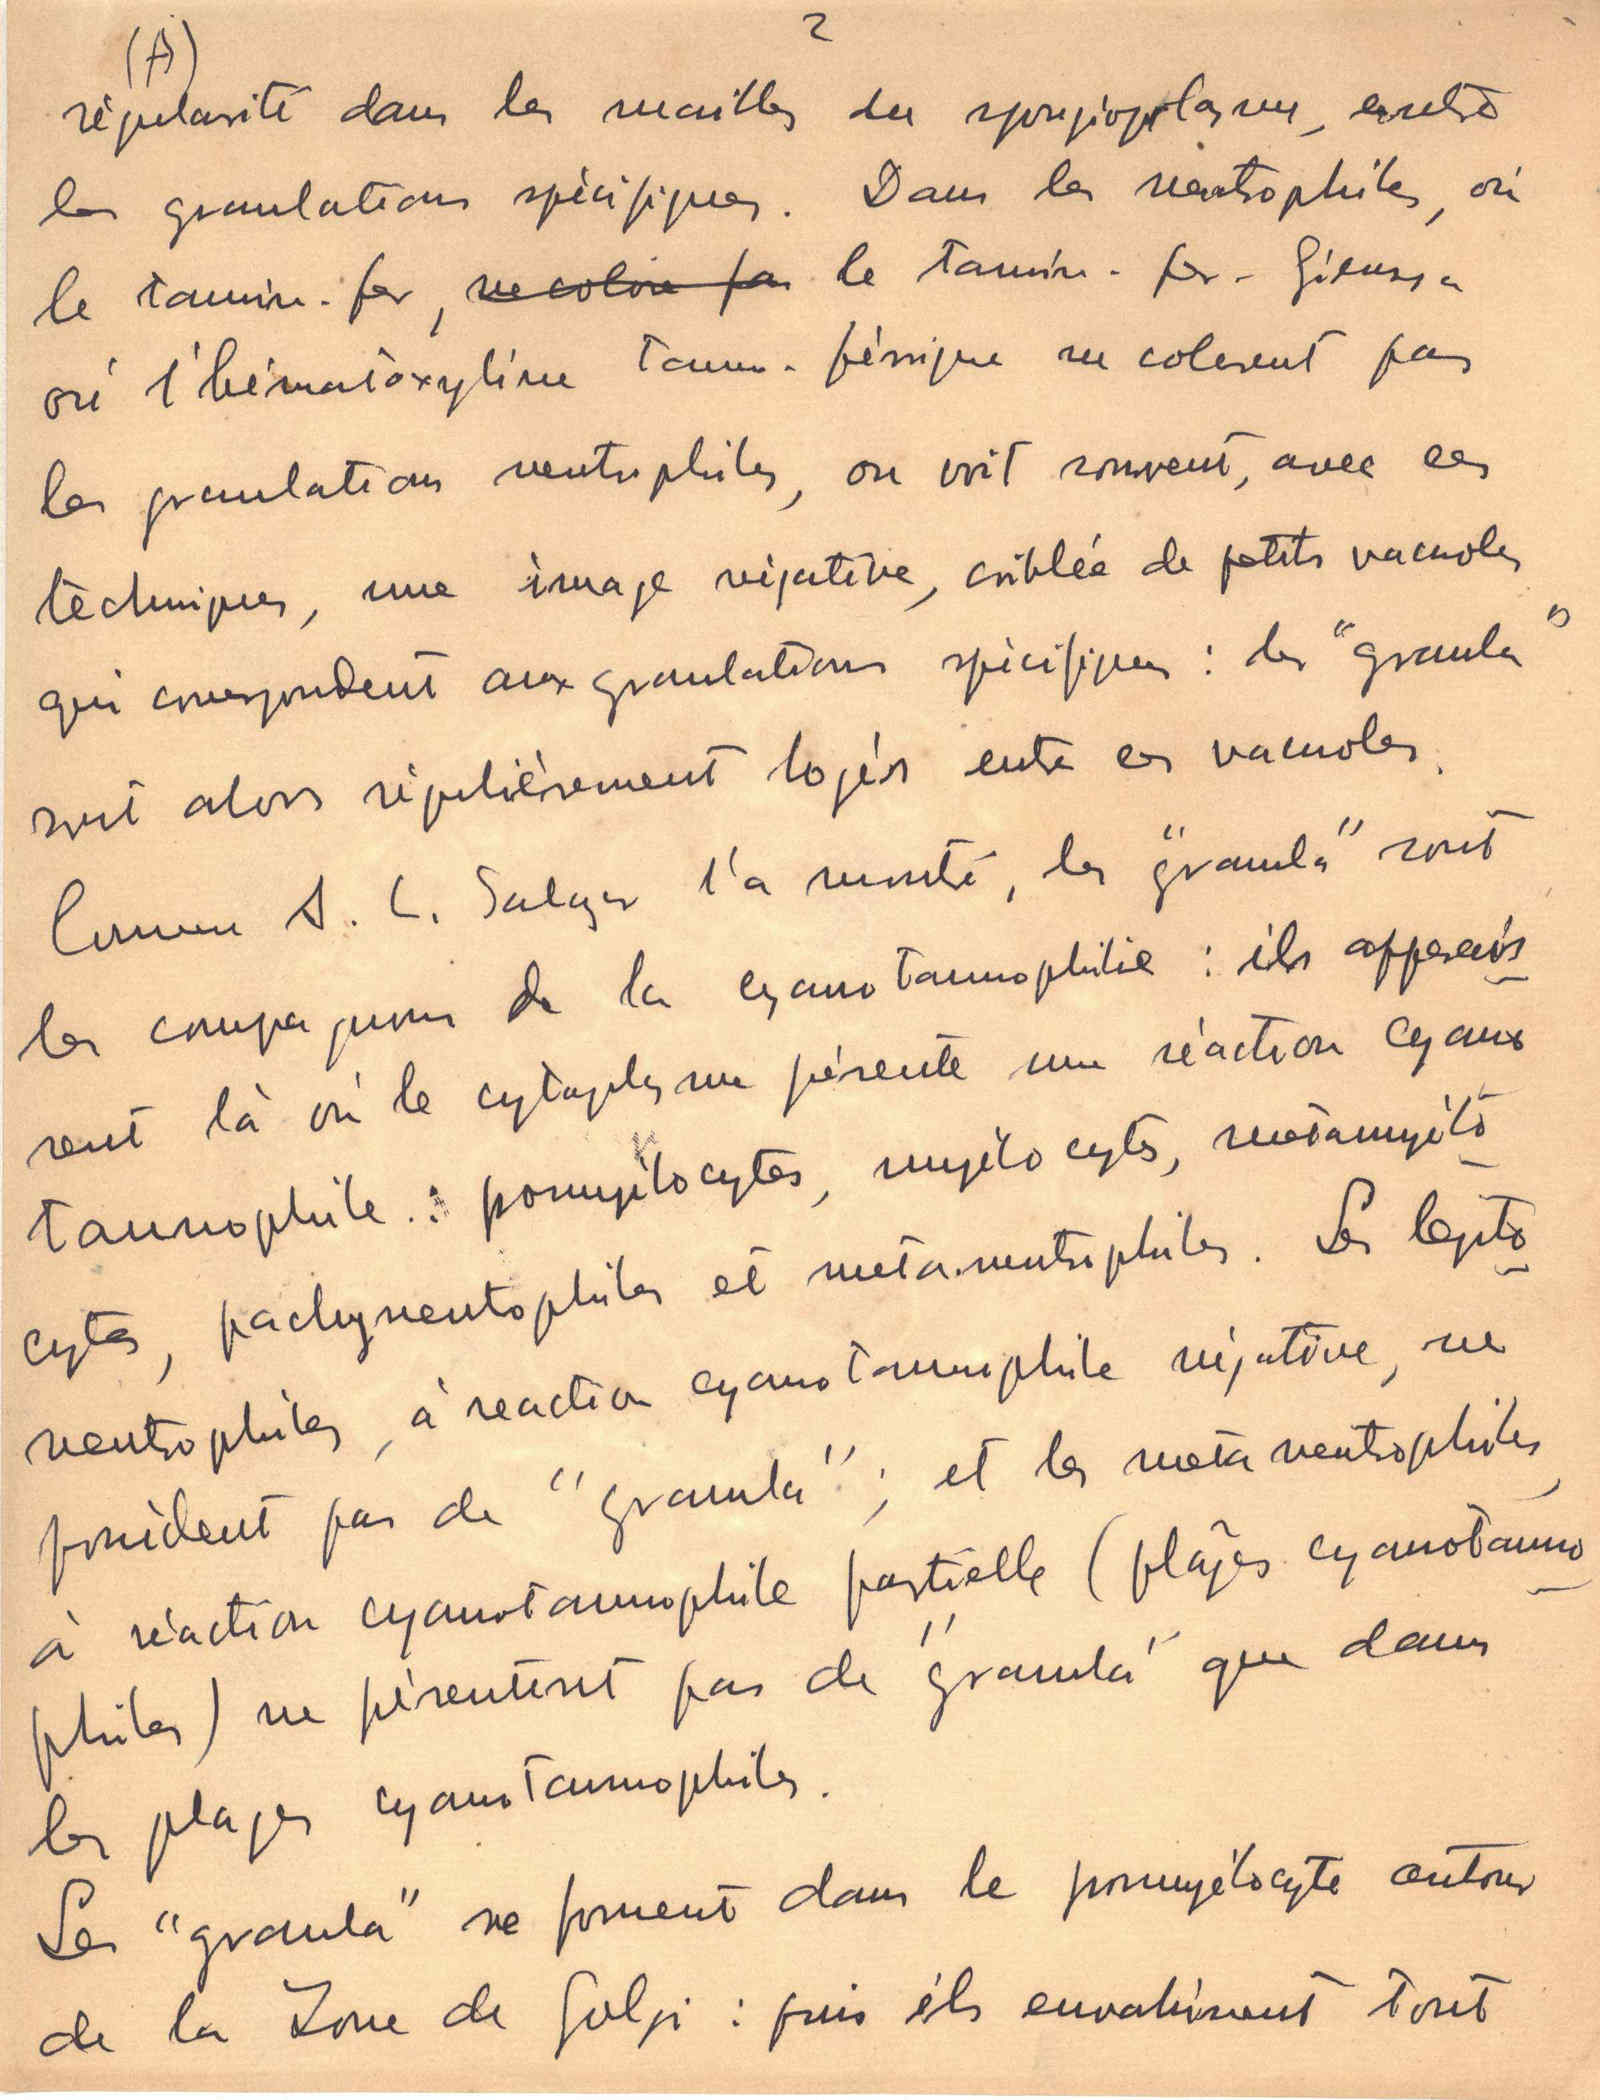 2
(A)
régularité dans les mailles du spongioplasme, entre
les granulations spécifiques. Dans les neutrophiles, où
le tannin-fer, ne colore pas le tannin-fer-Giemsa
où l'hématoxyline tanno-férrique ne colorent pas
les granulations neutrophiles, on voit souvent, avec ces
techniques, une image négative, criblée de petits vacuoles
qui correspondent aux granulations spécifiques : les "granula"
sont alors régulièrement logés entre ces vacuoles.
Comme A. L. Salazar l'a montré, les "granula" sont
les compagnons de la cyanotannophilie : ils apparais
sent là où le cytoplasme présente une réaction cyano
tannophile : promyélocytes, myélocytes, métamyélo
cytes, pachyneutrophiles et métaneutrophiles. Les lepto
neutrophiles, à réaction cyanotannophile négative, ne
possèdent pas de "granula" ; et les métaneutrophiles,
à réaction cyanotannophile partielle (plages cyanotanno
philes) ne présentent pas de "granula" que dans
les plages cyanotannophiles.
Les "granula" se forment dans le promyélocyte autour
de la Zone de Golgi : puis ils envahissent tout